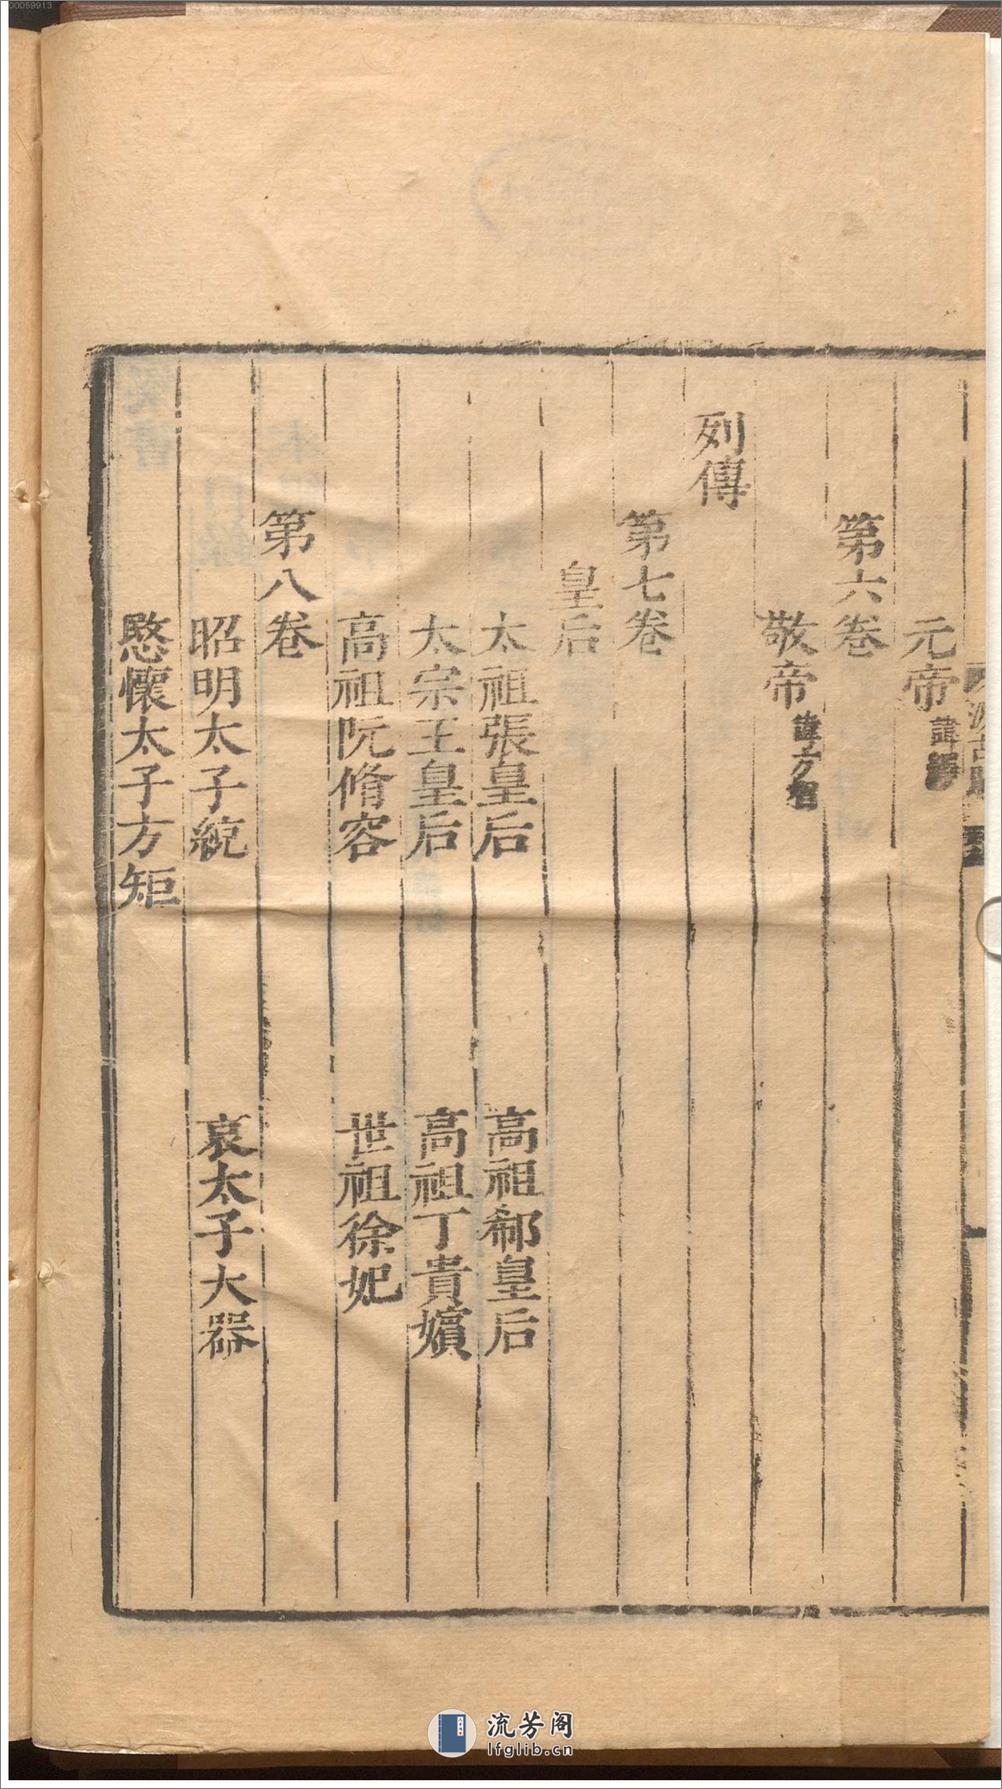 元帝諱繹
第六卷
敬帝諱方智
列傳
第七卷
皇后
太祖張皇后 高祖郗皇后
太宗王皇后 高祖丁貴嬪
高祖阮脩容 世祖徐妃
第八卷
昭明太子統 哀太子大器
愍懷太子方矩
00059913
流芳阁
lfglib.cn